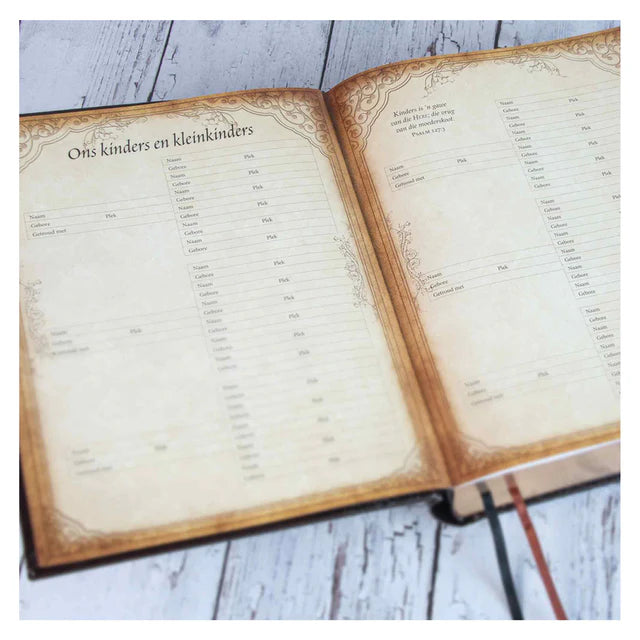 Ons kinders en kleinkinders
Naam Plek
Gebore
Getroud met
Naam Plek
Gebore
Getroud met
Naam Plek
Gebore
Getroud met
Naam Plek
Gebore
Naam Plek
Gebore
Naam Plek
Gebore
Naam Plek
Gebore
Naam Plek
Gebore
Naam Plek
Gebore
Naam Plek
Gebore
Naam Plek
Gebore
Naam Plek
Gebore
Naam Plek
Gebore
Naam Plek
Gebore
Naam Plek
Gebore
Naam Plek
Gebore
Naam Plek
Gebore
Naam Plek
Gebore
Naam Plek
Gebore
Naam Plek
Gebore
Kinders is 'n gawe
van die HERE; die vrug
van die moederskoot.
PSALM 127:3
Naam Plek
Gebore
Getroud met
Naam Plek
Gebore
Getroud met
Naam Plek
Gebore
Getroud met
Naam Plek
Gebore
Naam Plek
Gebore
Naam Plek
Gebore
Naam Plek
Gebore
Naam Plek
Gebore
Naam Plek
Gebore
Naam Plek
Gebore
Naam Plek
Gebore
Naam Plek
Gebore
Naam Plek
Gebore
Naam Plek
Gebore
Naam Plek
Gebore
Naam
Gebore
Naam
Gebore
Naam
Gebore
Naam